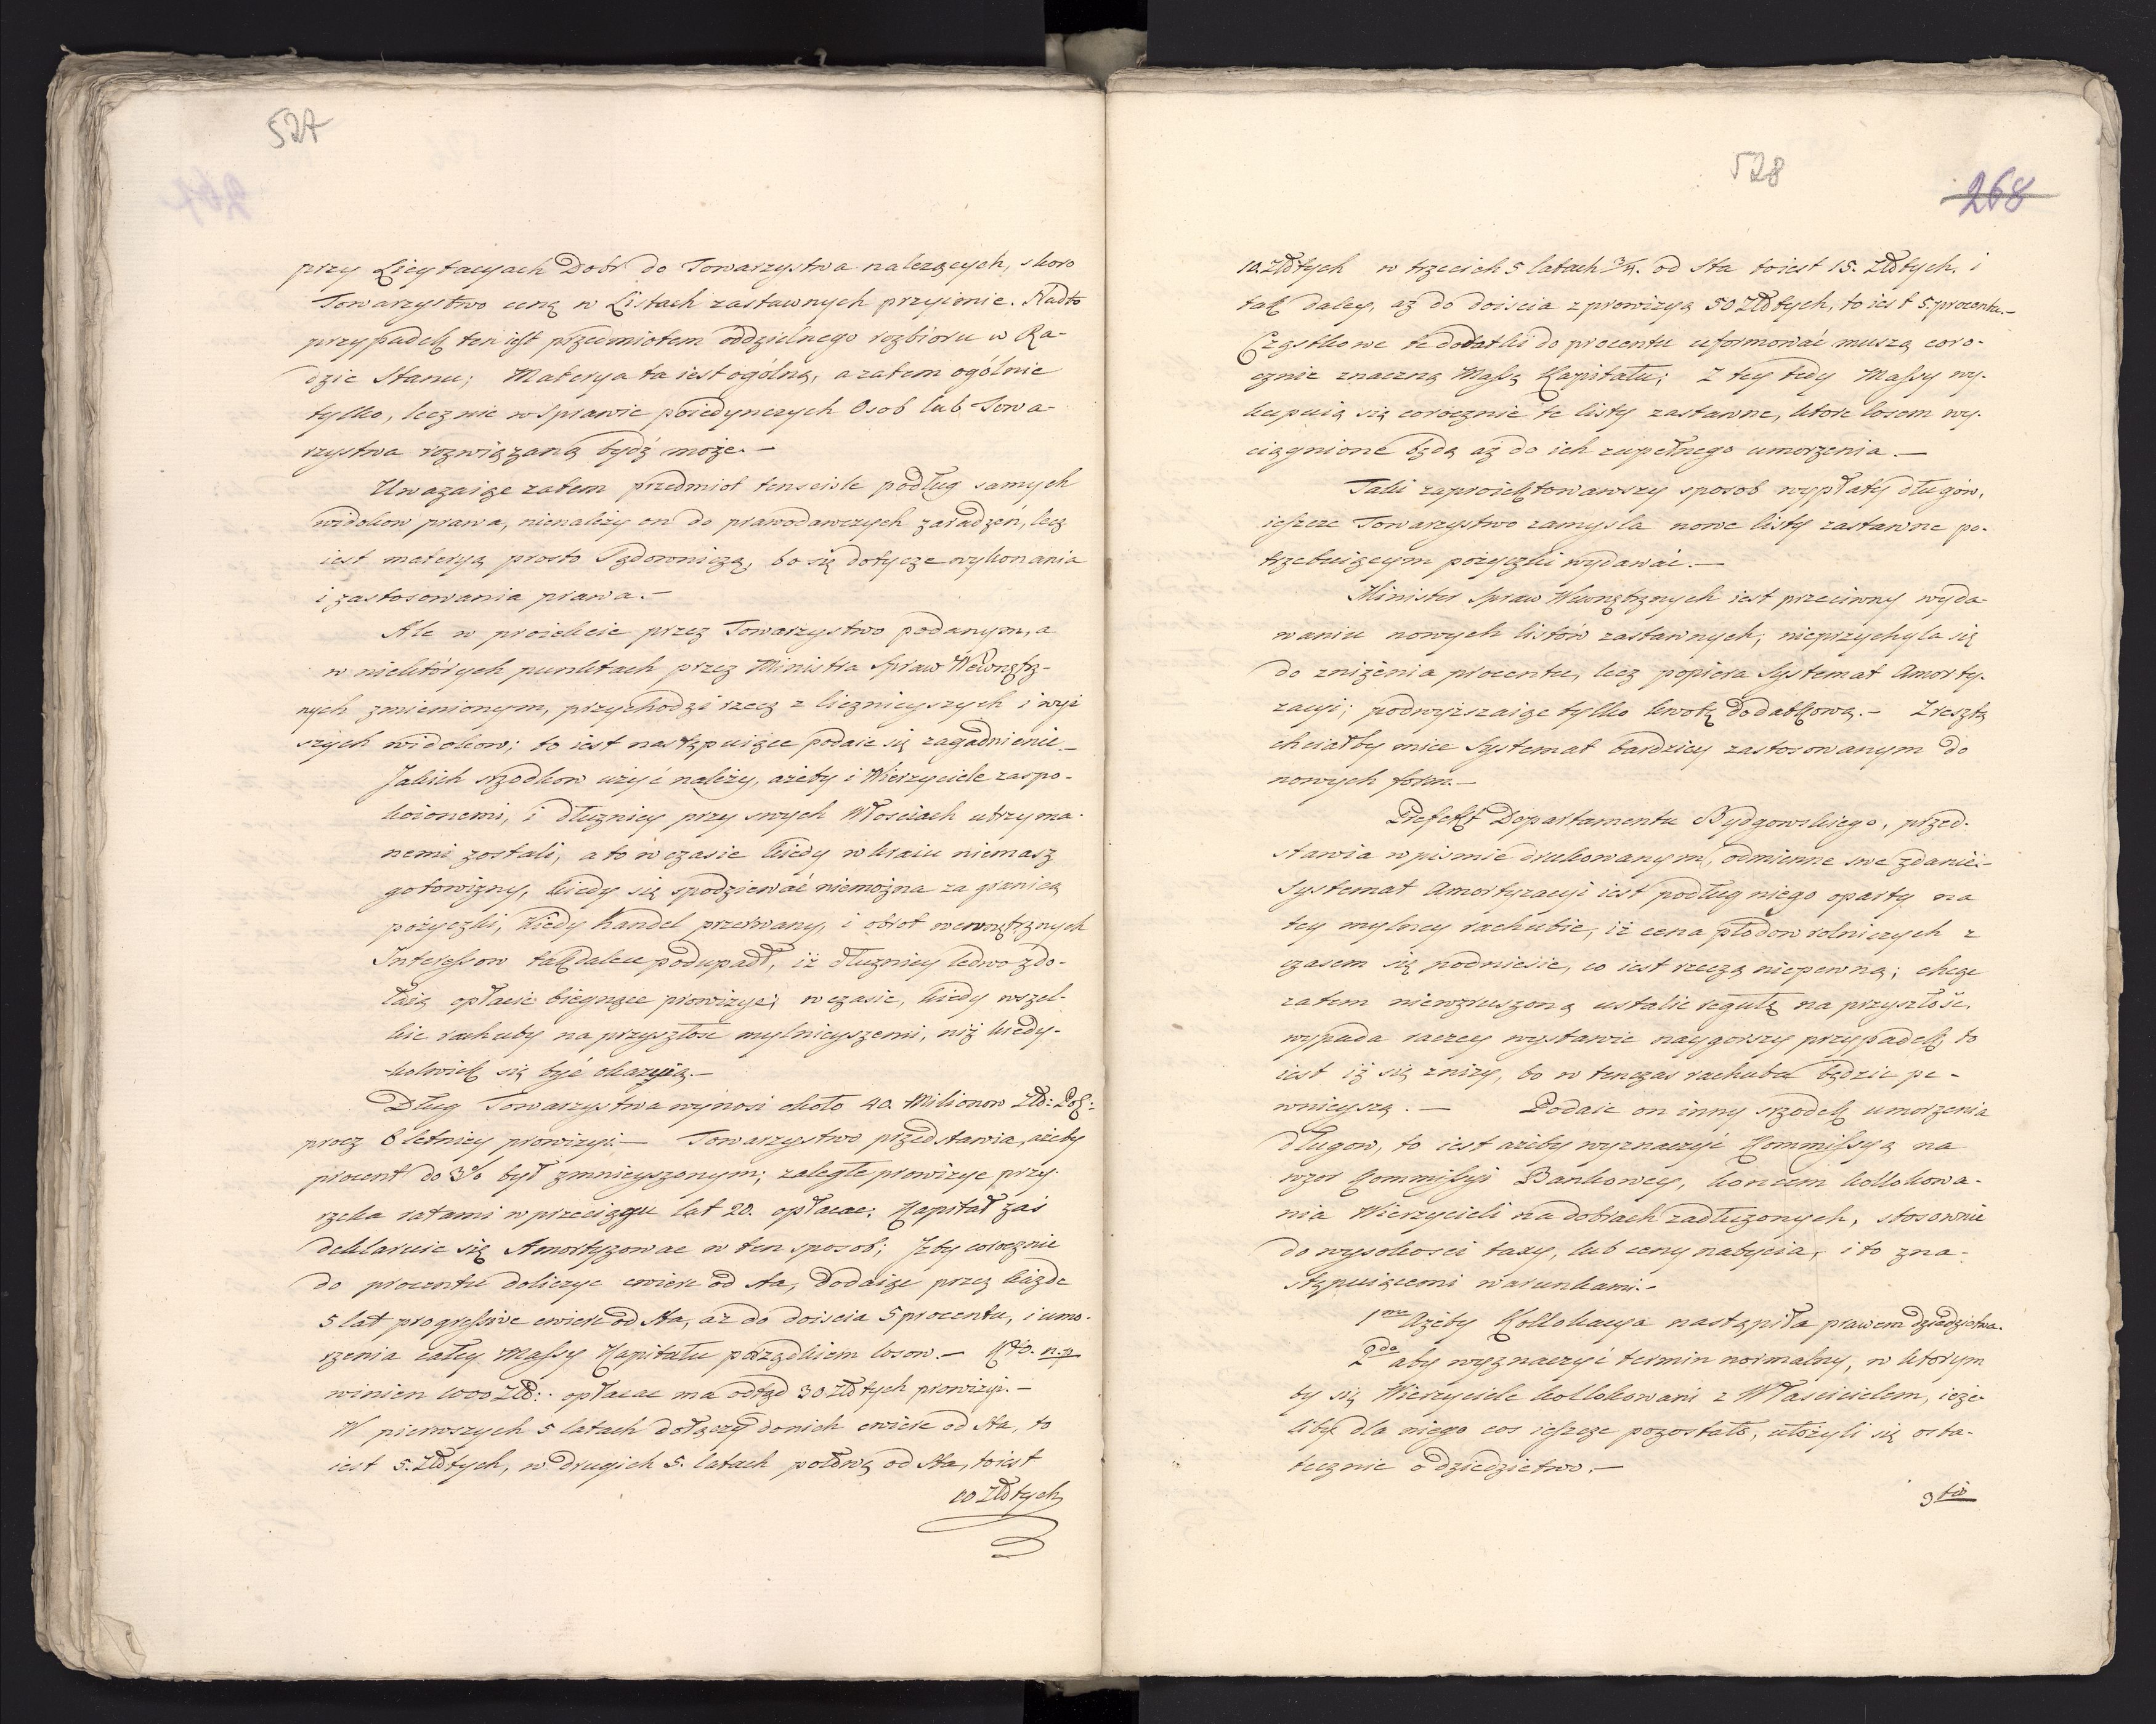 527
przy Licytacyach Dobr do Towarzystwa nalezących, skoro
Towarzystwo ceną w Listach zastawnych przyimie. Nadto
przypadek ten iest przedmiotem oddzielnego rozbioru w Ra-
dzie Stanu; Materya ta iest ogólną, a zatem ogólnie
tylko, lecz nie w sprawie poiedynczych Osob lub Towa-
rzystwa rozwiązaną bydź może.-
Uwazaiąc zatem przedmiot ten scisle podług samych
widokow prawa, nienależy on do prawodawczych zaradzeń, lecz
iest materyą prosto Sądowniczą, bo się dotycze wykonania
i zastosowania prawa.-
Ale w proiekcie przez Towarzystwo podanym, a
w niektórych punktach przez Ministra Spraw Wewnętrz-
nych zmienionym, przychodzi rzecz z licznieyszych i wyż
szych widokow; to iest następuiące podaie się zagadnienie-
Jakich srzodkow użyć należy, ażeby i Wierzyciele zaspo-
koionemi, i dłuznicy przy swych Włosciach utrzyma-
nemi zostali, a to w czasie kiedy w kraiu niemasz
gotowizny, kiedy się spodziewać niemożna za granicą
pożyczki, kiedy handel przerwany, i obrot wewnętrznych
Interessow tak dalece podupadł, iż dłuznicy ledwo zdo-
łaią opłacić biegnące prowizye; w czasie, kiedy wszel-
kie rachuby na przyszłosc mylnieyszemi, niż kiedy-
-kolwiek się być okazuią.-
Dług Towarzystwa wynosi około 40. Milionow Złł: Pol:
procz 8 letniey prowizyi.- Towarzystwo przedstawia, ażeby
procent do 3% był zmnieyszonym; zaległe prowizye przy-
rzeka ratami w przeciągu lat 20. opłacac: Kapitał zas
deklaruie się Amortyzowac w ten sposob; Jżby corocznie
do procentu doliczyc cwierc od sta, dodaiąc przez każde
5 lat progressive cwierc od sta, aż do doiscia 5 procentu, i umo-
rzenia całey Massy Kapitału porządkiem losow.- Kto. n. p
winien 1000 Złł: opłacac ma odtąd 30 złłtych prowizyi.-
W pierwszych 5 latach dołączy do nich cwierc od sta, to
iest 5. Złłtych, w drugich 5. latach połowę od sta, to iest
10 złłtych
528
268
10. Złłtych w trzecich 5 latach 3/4. od sta to iest 15. Złłtych. i
tak daley, aż do doiscia z prowizyą 50 Złłtych, to iest 5. procentu.-
Cząstkowe te dodatki do procentu uformować muszą coro-
cznie znaczną Massę Kapitału; Z tey tedy Massy wy-
kupuią się corocznie te listy zastawne, ktore losem wy-
ciągnione będą aż do ich zupełnego umorzenia.-
Taki zaproiektowawszy sposob wypłaty długow,
ieszcze Towarzystwo zamysla nowe listy zastawne po-
trzebuiącym pożyczki wydawać.-
Minister Spraw Wewnętrznych iest przeciwny wyda-
waniu nowych listów zastawnych; nieprzychyla się
do zniżenia procentu, lecz popiera Systemat Amorty-
zacyi; podwyższaiąc tylko kwotę dodatkową.- Zresztą
chciałby miec Systemat bardziey zastosowanym do
nowych form.-
Prefekt Departamentu Bydgowskiego, przed-
stawia w pismie drukowanym, odmienne swe zdanie.-
Systemat Amortyzacyi iest podług niego oparty na
tey mylney rachubie, iż cena płodow rolniczych z
czasem się podniesie, co iest rzeczą niepewną; chcąc
zatem niewzruszoną ustalic regułę na przyszłość.
wypada raczey wystawic naygorszy przypadek, to
iest iż się zniży, bo w tenczas rachuba będzie pe-
wnieyszą.- Podaie on inny srzodek umorzenia
długow, to iest ażeby wyznaczyć Kommissyą na
wzor Kommissyi Bankowey, koncem kollokowa-
nia Wierzycieli na dobrach zadłużonych, stosownie
do wysokosci taxy, lub ceny nabycia, i to z na-
stępuiącemi warunkami.-
1mo Ażeby Kollokacya nastąpiła prawem dziedzictwa.
2do aby wyznaczyć termin normalny, w ktorym
by się Wierzyciele kollokowani z Włascicielem, ieże-
liby dla niego cos ieszcze pozostało, ułożyli się osta-
tecznie o dziedzictwo.-
3tio